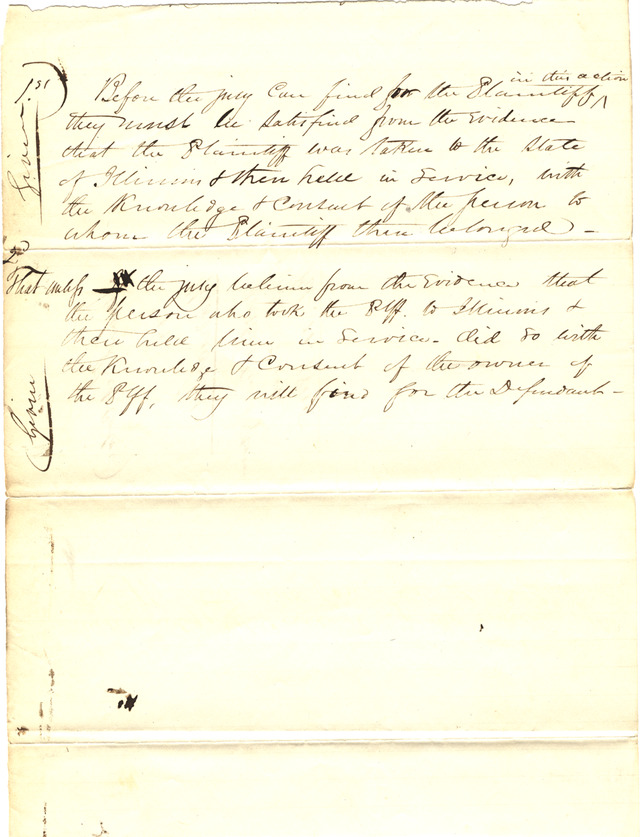 1st
Given
in this action
Before the jury can find for the Plaintiff
they must be satisfied from the Evidence
that the Plaintiff was taken to the State
of Illinois & then held in Service, with
the Knowledge & Consent of the person to
whom the Plaintiff then belonged –
2d
That unless the jury believe from the Evidence that
the person who took the Plff. to Illinois &
then held him in Service - did so with
the Knowledge & Consent of the owner of
the Plff, they will find for the Defendant –
Given